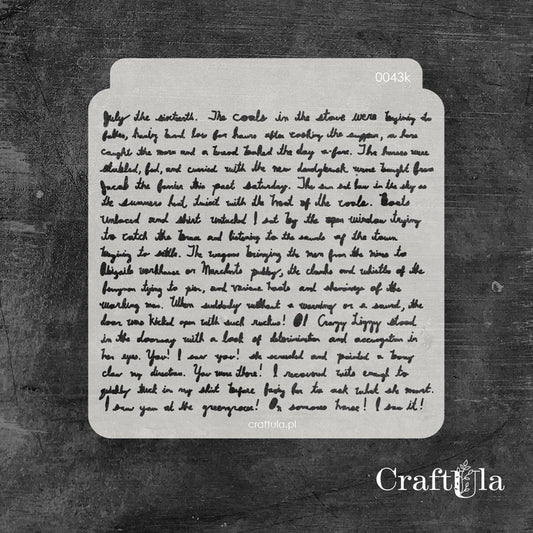 0043k
July the sixteenth. The coals in the stove were beginning to
falter, having burnt low for hours after cooking the supper, a hare
caught the morn and a bread baked the day afore. The horses were
stabled, fed, and curried with the new dandybrush were bought from
Jacob the farrier this past saturday. The sun sat low in the sky as
the summers hot, twist with the heat of the coals. Boots
unlaced and shirt untucked I sat by the open window trying
to catch the breeze and listening to the sounds of the town
begining to settle. The wagons bringing the men from the mines to
Abigails workhouse or Merchants public, the clanks and whistles of the
trying to pier, and various hoots and of the
working men. When suddenly without a warning or a sound, the
door was kicked open with such ruckus! Ol Crazy Lizzy stood
in the doorway with a look of determination and accusation in
her eyes. You! I saw you! she screeched and pointed a bony
claw my direction. You were there! I recovered wits enough to
quickly tuck in my shirt before facing her to ask what she meant.
I saw you at the greengrocer! On someones horse! I saw it!
craftula.pl
CraftUla